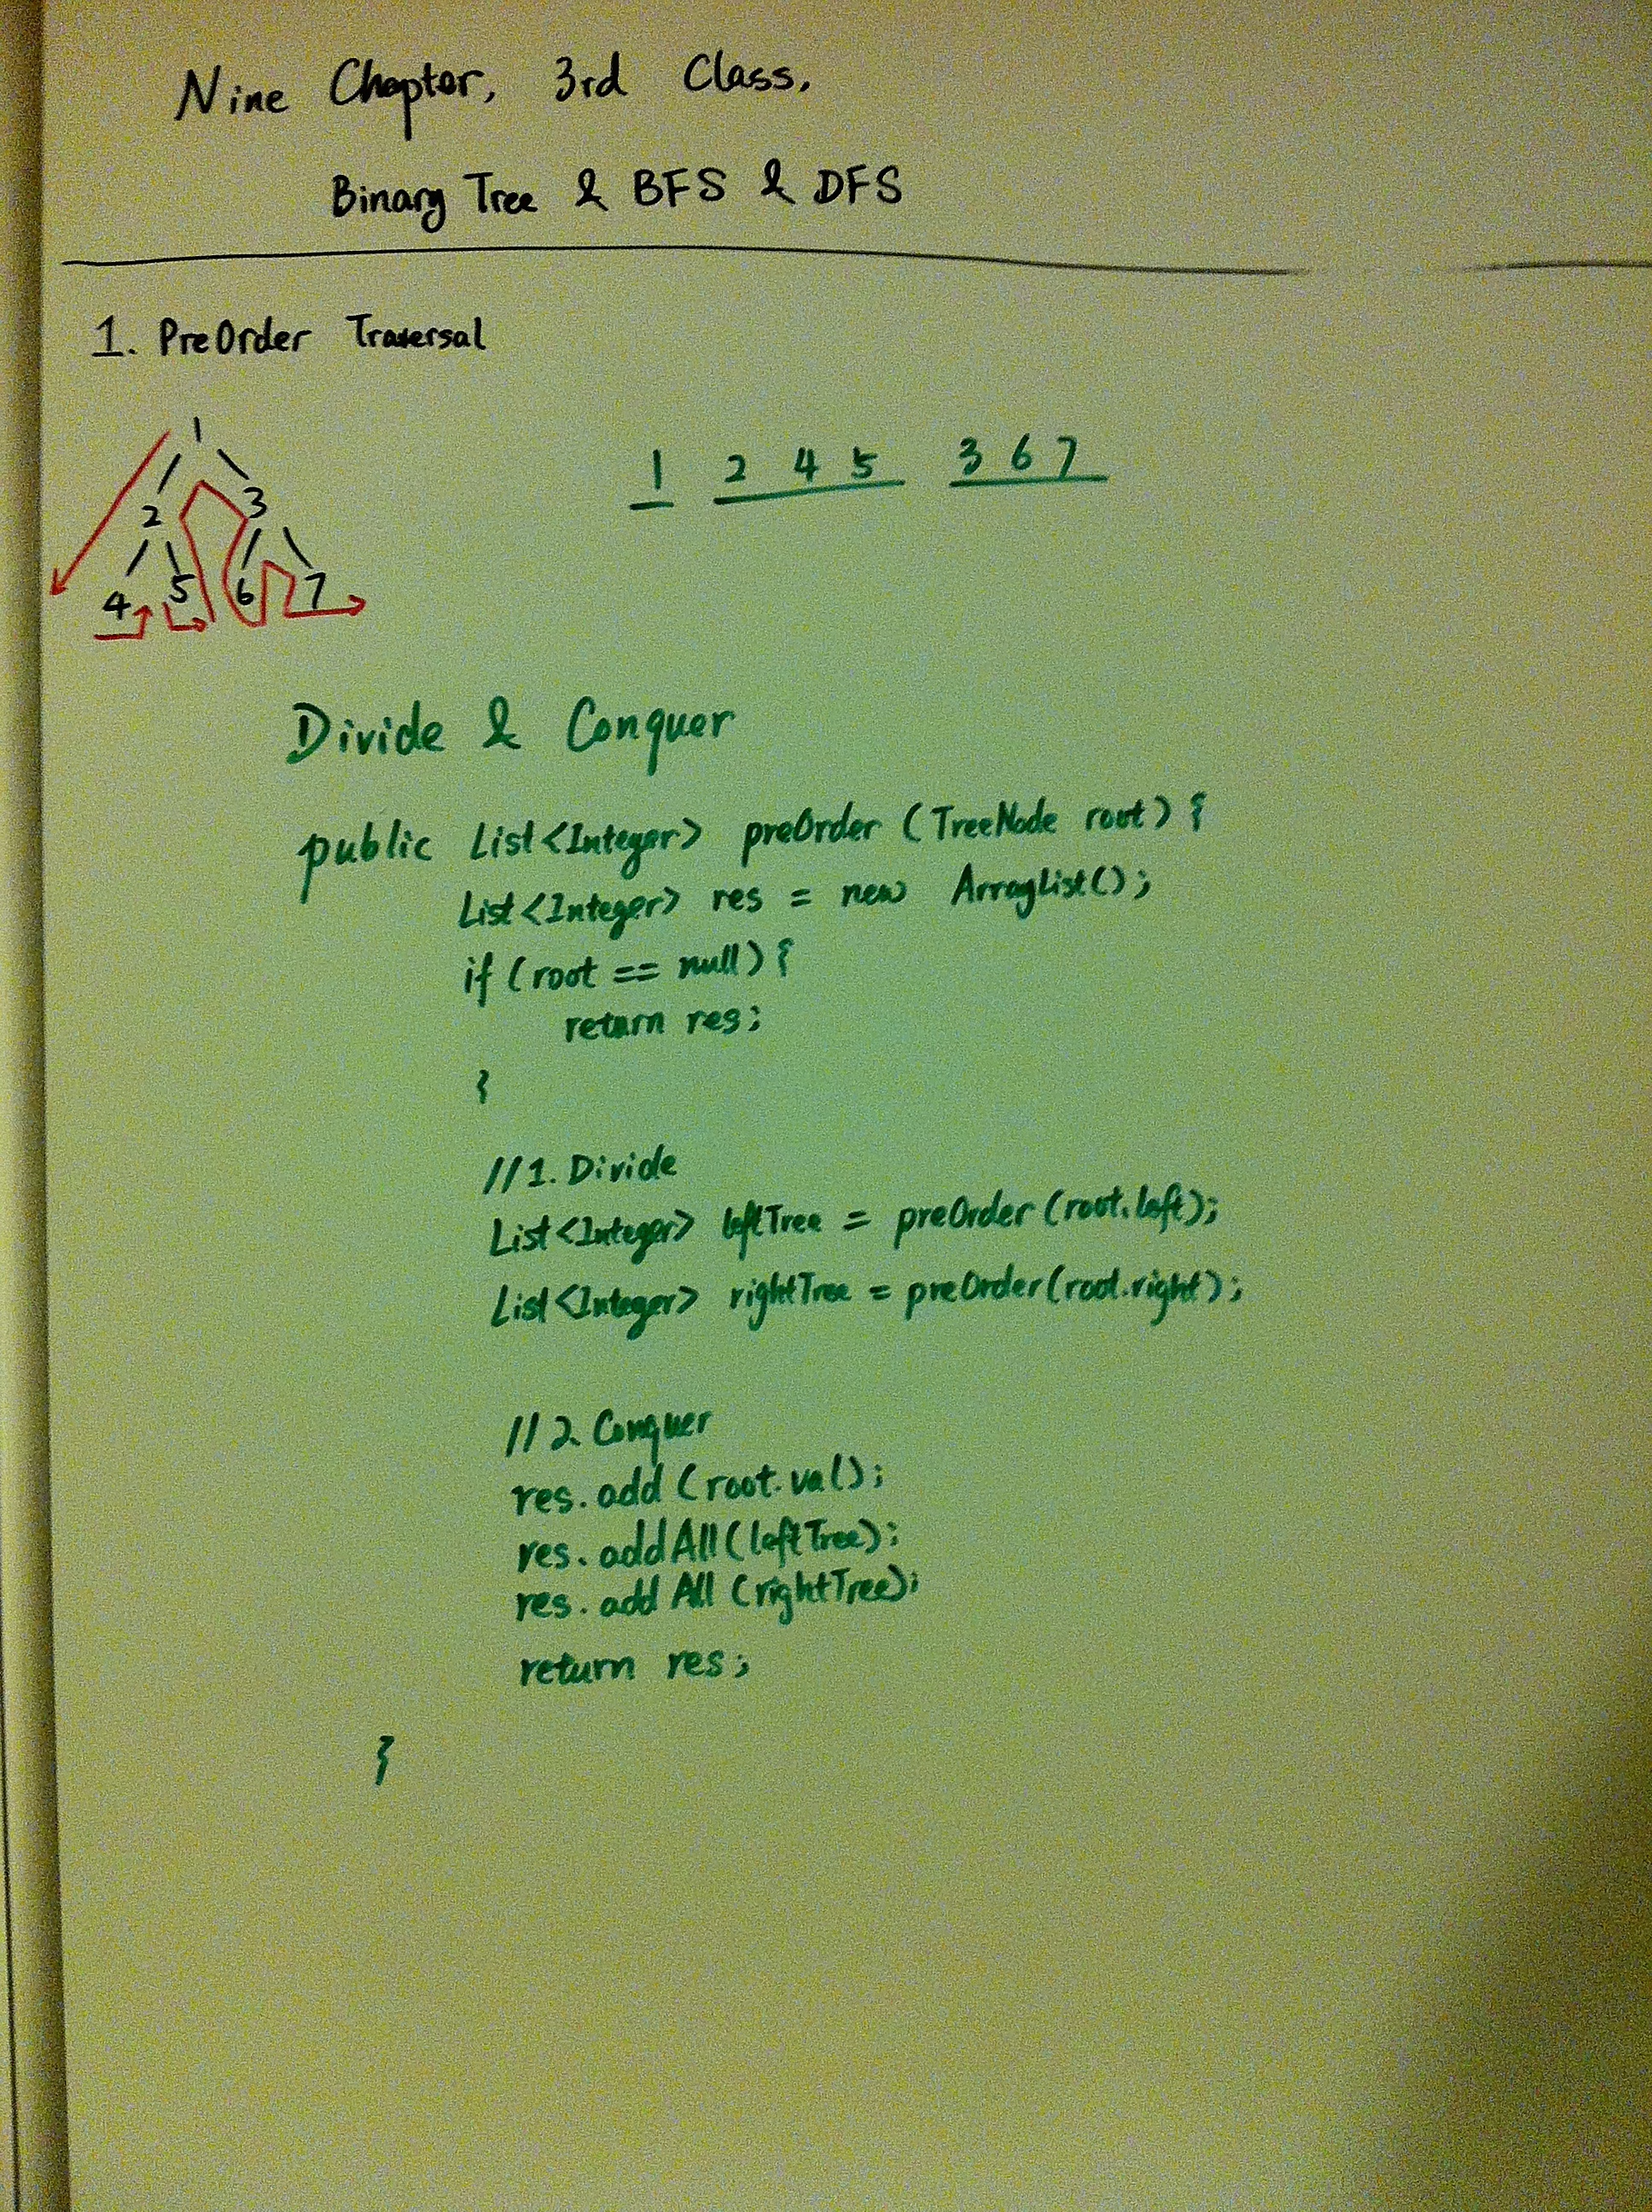 Nine Chapter, 3rd Class,
Binary Tree & BFS & DFS
1. PreOrder Traversal
1
2 3
4 5 6 7
1 2 4 5 3 6 7
Divide & Conquer
public List<Integer> preOrder (TreeNode root) {
List<Integer> res = new ArrayList();
if (root == null) {
return res;
}
//1. Divide
List<Integer> leftTree = preOrder (root.left);
List<Integer> rightTree = preOrder (root.right);
//2. Conquer
res.add (root.val);
res.addAll (leftTree);
res.addAll (rightTree);
return res;
}